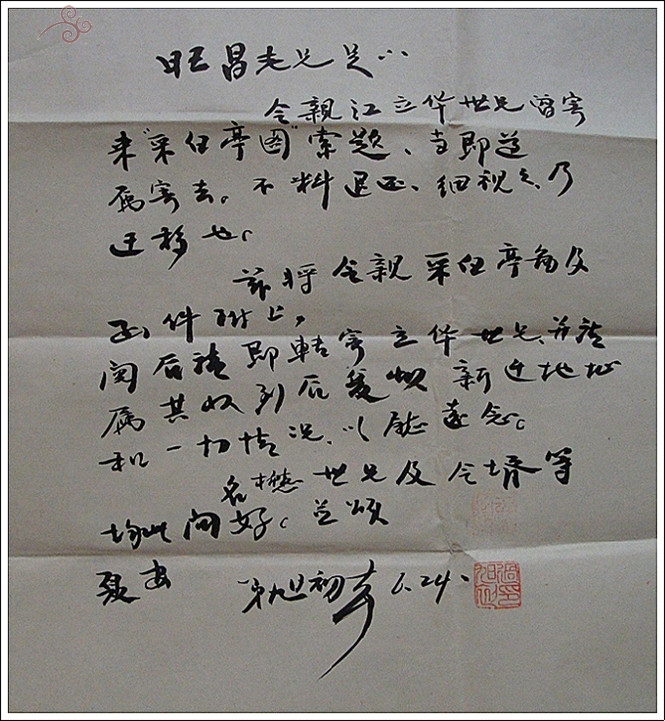 旺昌老兄足下：
令親江立华世兄曾寄
来“采白亭图”索题、当即遵
属寄去。不料退回、细视之乃
迁移也。
兹将令親采白亭图及
函件附上，
阅后请即轉寄立华世兄、并请
属其收到后复我新迁地址
和一切情况、以慰遠念。
名樾世兄及令壻等
均此问好。並颂
夏安
弟旭初 6.24.